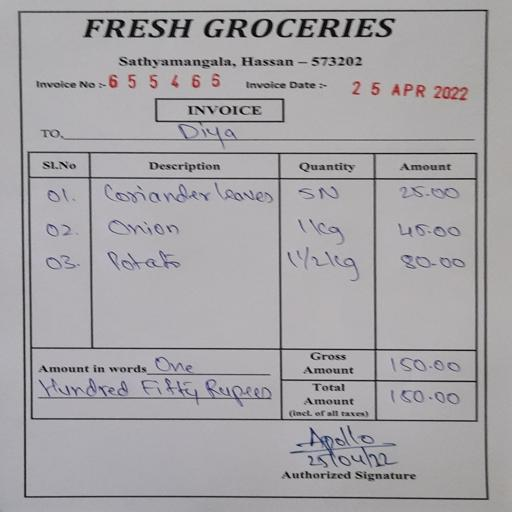 FRESH GROCERIES
Sathyamangala, Hassan – 573202
Invoice No :- 655466 Invoice Date :- 25 APR 2022
INVOICE
TO, Diya
Sl.No Description Quantity Amount
01. Coriander leaves 5N 25.00
02. Onion 1kg 45.00
03. Potato 1 1/2 kg 80.00
Amount in words One
Hundred Fifty Rupees
Gross Amount 150.00
Total Amount (incl. of all taxes) 150.00
Apollo
25/04/22
Authorized Signature